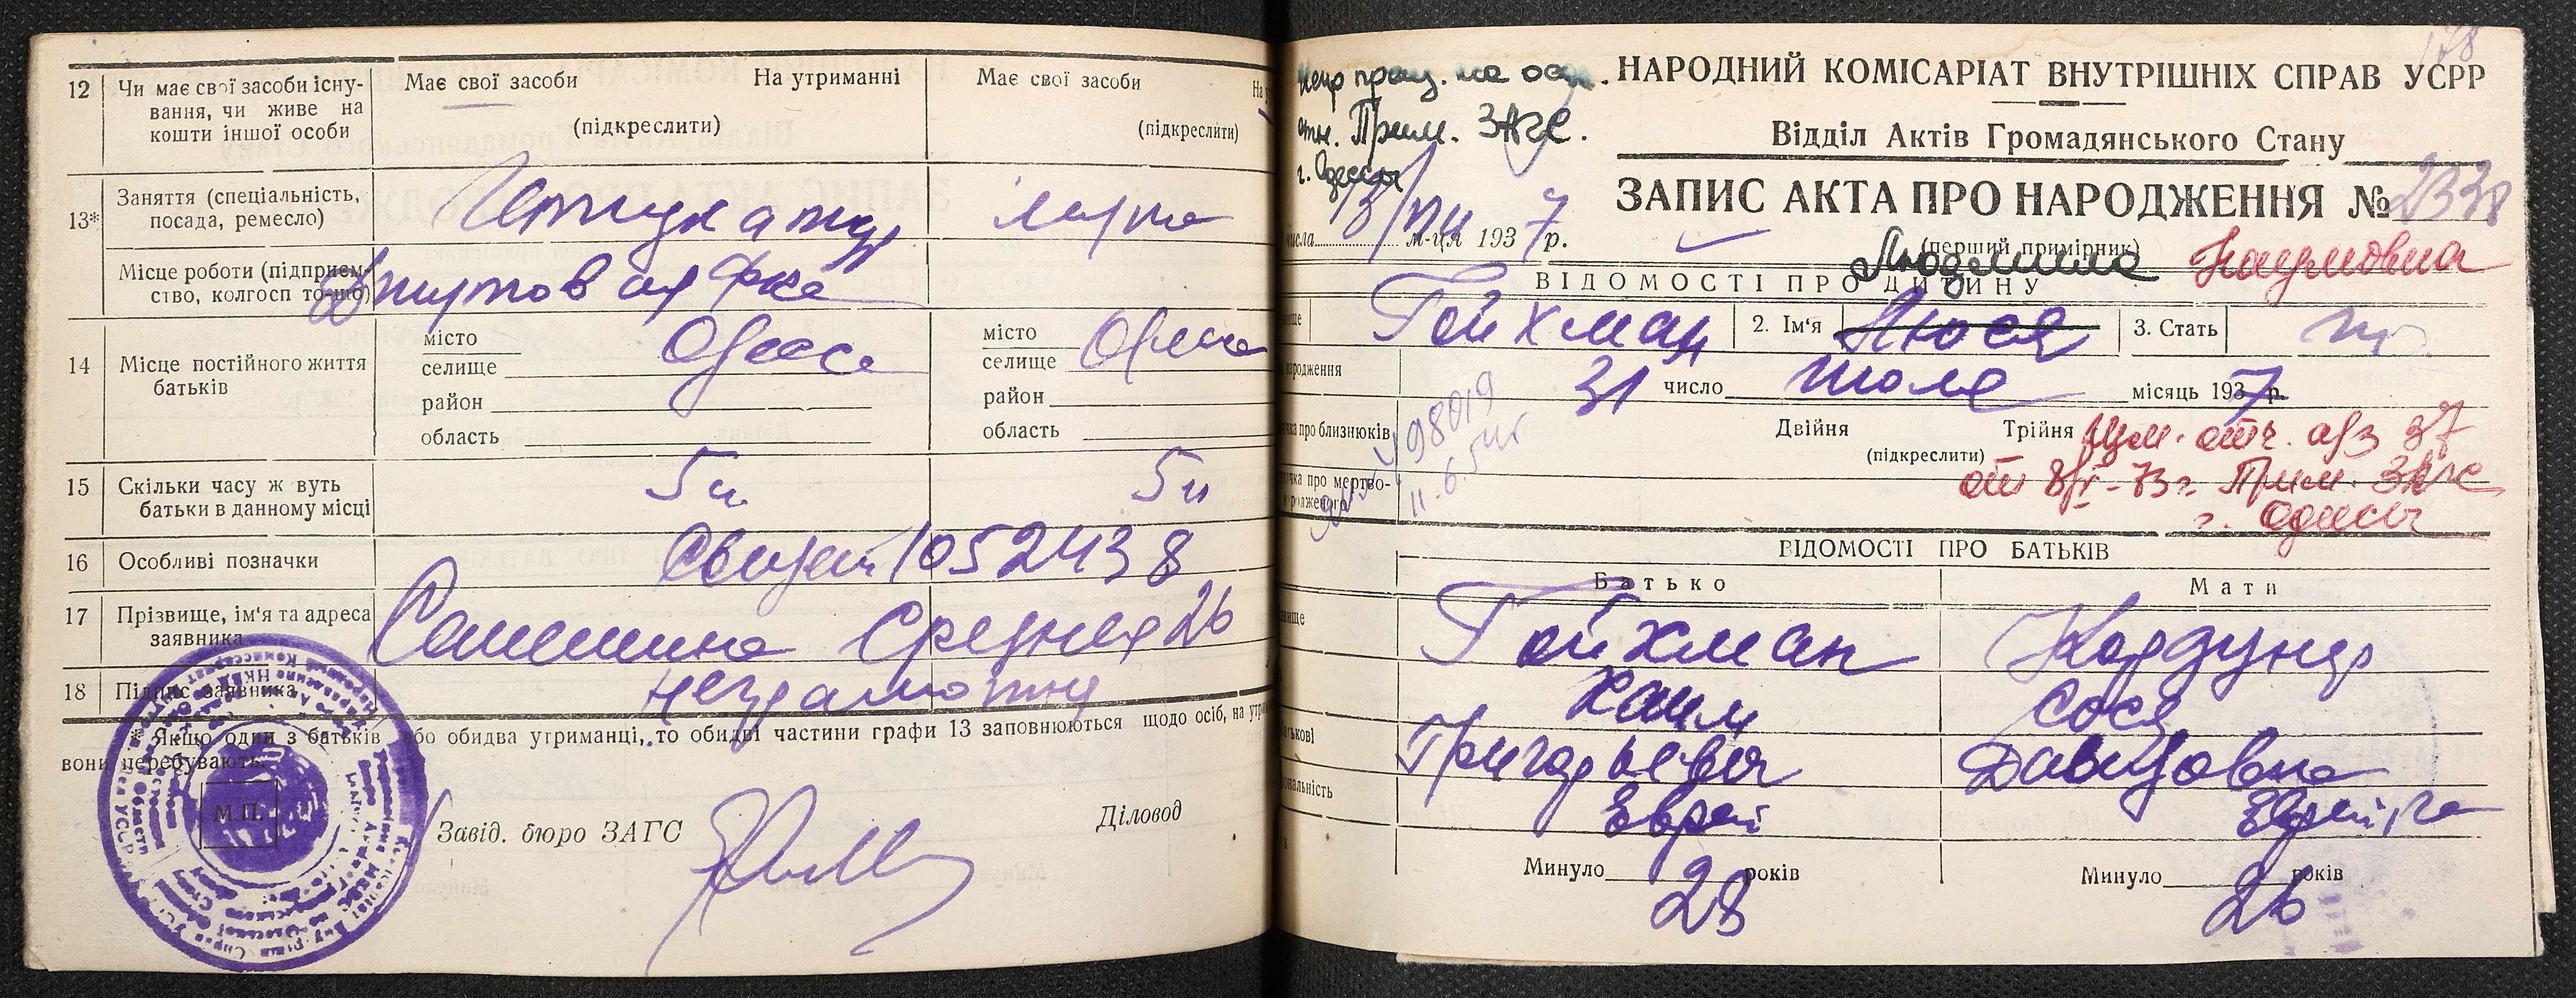 12 Чи має свої засоби існу-
вання, чи живе на
кошти іншої особи
Має свої засоби На утриманні
(підкреслити)
Має свої засоби
(підкреслити)
13* Заняття (спеціальність,
посада, ремесло)
Штукатур
Місце роботи (підприєм-
ство, колгосп то-що)
14 Місце постійного життя
батьків
місто
селище
район
область
Одесса
місто
селище
район
область
Одесса
15 Скільки часу ж вуть
батьки в данному місці
5 л
5 л
16 Особливі позначки
1052438
17 Прізвище, ім'я та адреса
заявника
Средняя 26
18 Підпис заявника
неграмотна
* Якщо один з батьків або обидва утриманці, то обидві частини графи 13 заповнюються щодо осіб, на
вони перебувають.
М.П.
Завід. бюро ЗАГС
Діловод
178
Прим. ЗАГС.
г. Одессы
НАРОДНИЙ КОМІСАРІАТ ВНУТРІШНІХ СПРАВ УСРР
Відділ Актів Громадянського Стану
ЗАПИС АКТА ПРО НАРОДЖЕННЯ № 2338
числа 13/VIII м-ця 1937 р.
(перший примірник)
Людмила Наумовна
ВІДОМОСТІ ПРО ДИТИНУ
Гойхман 2. Ім'я Люся 3. Стать
31 число Июля місяць 1937 р.
98019
11.6.54г
Двійня Трійня
(підкреслити)
Изм. отч. а/з 37
от 8/I-73г. Прим. ЗАГС
г. Одессы
ВІДОМОСТІ ПРО БАТЬКІВ
Батько Мати
Гойхман Кордунер
Хаим Сося
Григорьевич Давидовна
Еврей Еврейка
Минуло 28 років Минуло 26 років